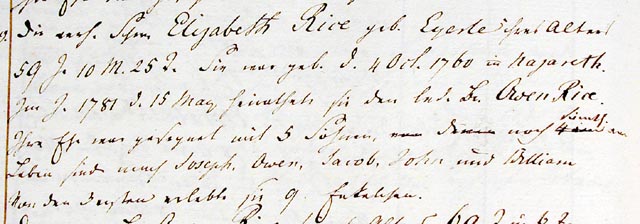 9. Die verh. Schw. Elisabeth Rice geb. Eyerle ihres Alters
59 J. 10 M. 25 T. Sie war geb. d. 4 Oct. 1760 in Nazareth.
Im J. 1781 d. 15 May heirathete sie den led. Br. Owen Rice.
Ihre Ehe war gesegnet mit 5 Söhnen, von denen noch sämtl. am
Leben sind nach Joseph, Owen, Jacob, John und William
Von den Ersten erlebte sie 9 Enkelchen.